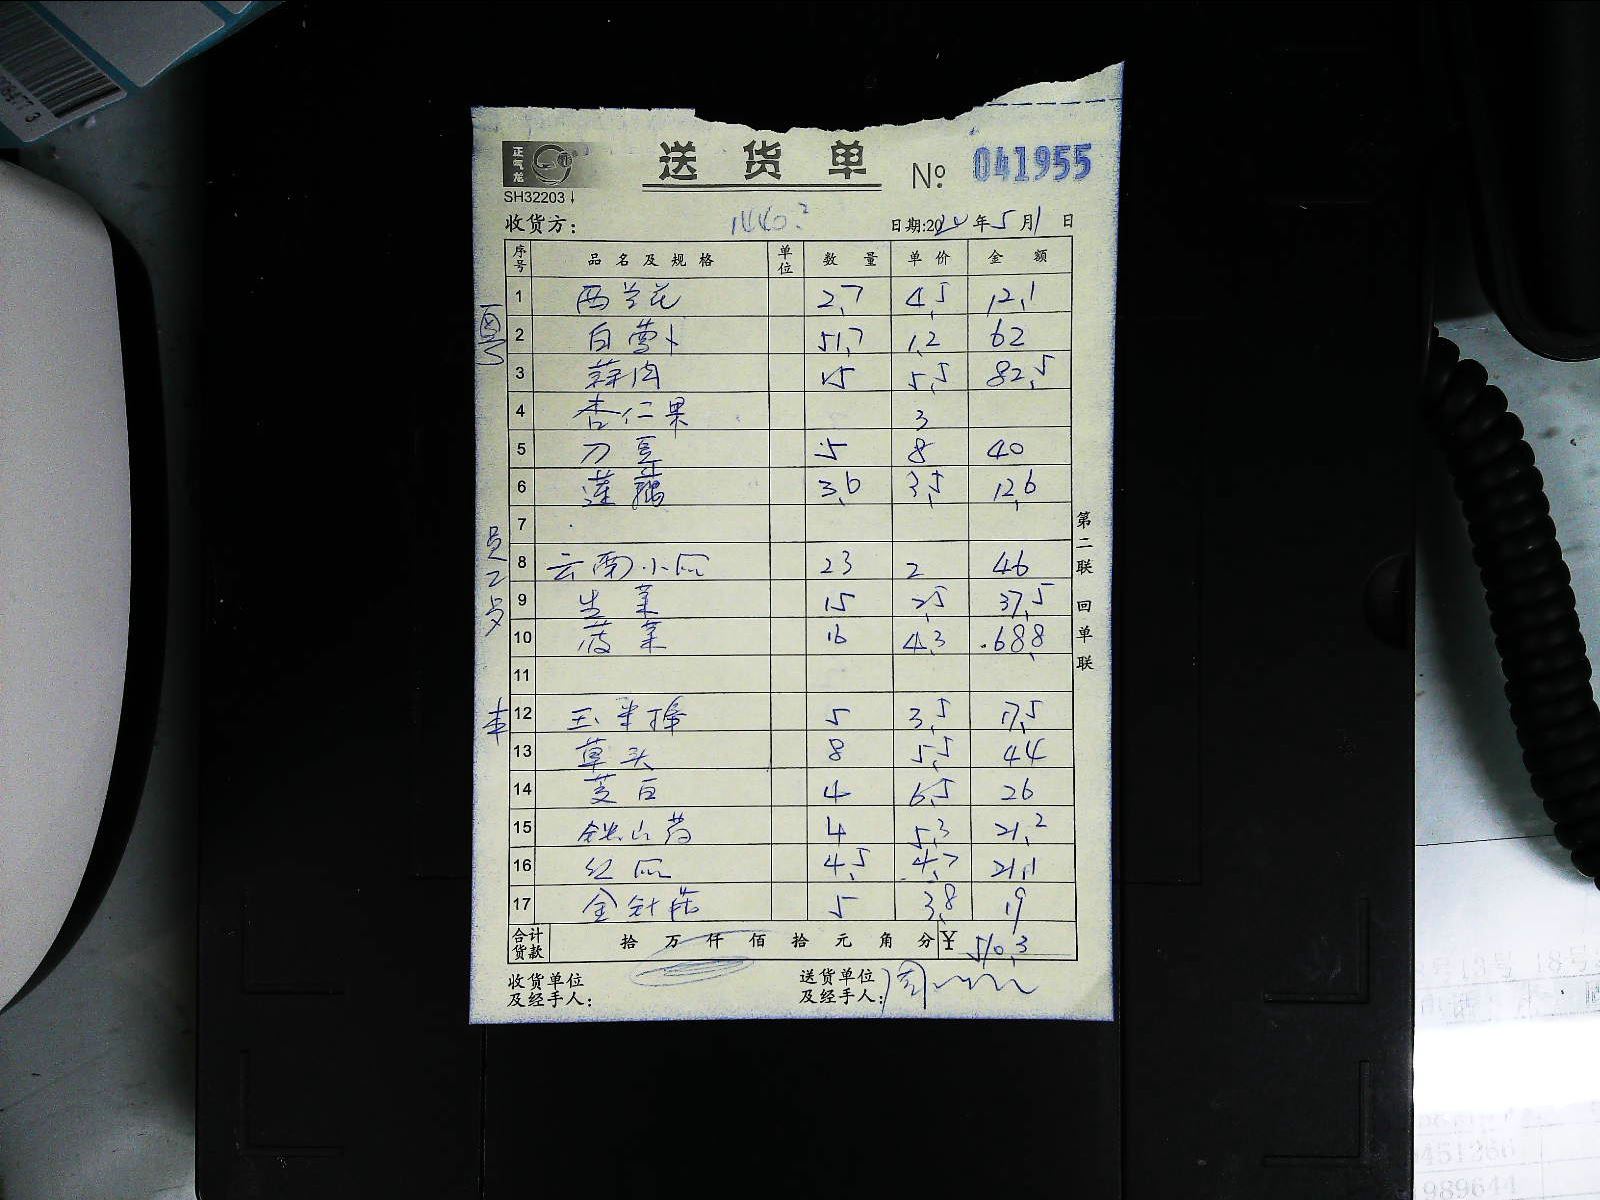 正气龙
送货单 № 041955
SH32203
收货方： 日期:2024年5月1日
序号 品名及规格 单位 数量 单价 金额
1 西兰花 2.7 4.5 12.1
2 白萝卜 51.7 1.2 62
3 蒜肉 15 5.5 82.5
4 杏仁果 3
5 刀豆 5 8 40
6 莲藕 3.6 3.5 12.6
7
8 云南小瓜 23 2 46
9 生菜 15 2.5 37.5
10 菠菜 16 4.3 68.8
11
12 玉米棒 5 3.5 17.5
13 草头 8 5.5 44
14 茭白 4 6.5 26
15 铁山药 4 5.3 21.2
16 红瓜 4.5 4.7 21.1
17 金针菇 5 3.8 19
合计货款 拾万仟佰拾元角分 ¥ 510.3
收货单位及经手人：
送货单位及经手人：
第二联 回单联